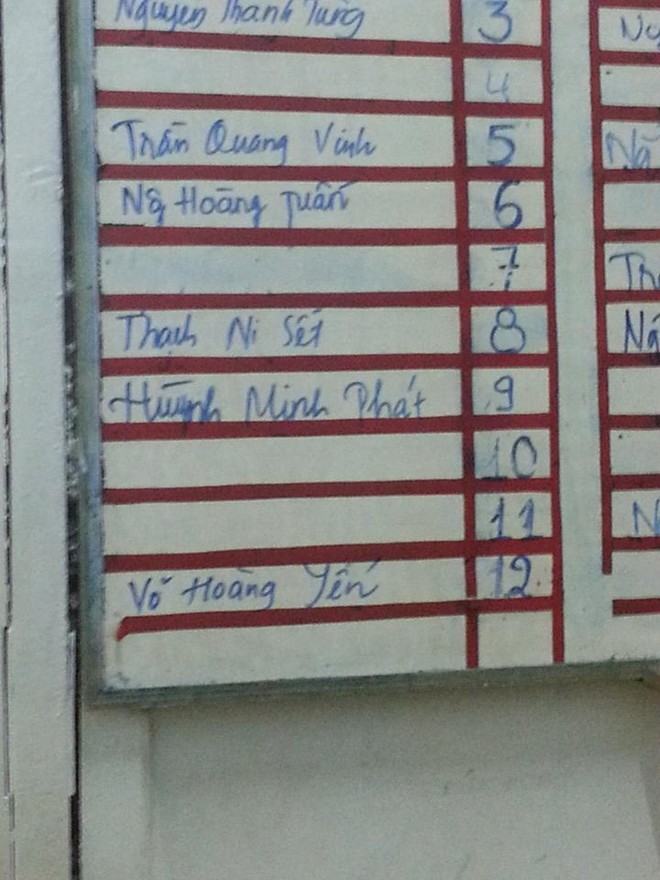 Nguyen Thanh Tùng 3
4
Trần Quang Vinh 5
Ngô Hoàng Tuấn 6
7
Thạch Ni Sết 8
Huỳnh Minh Phát 9
10
11
Võ Hoàng Yến 12